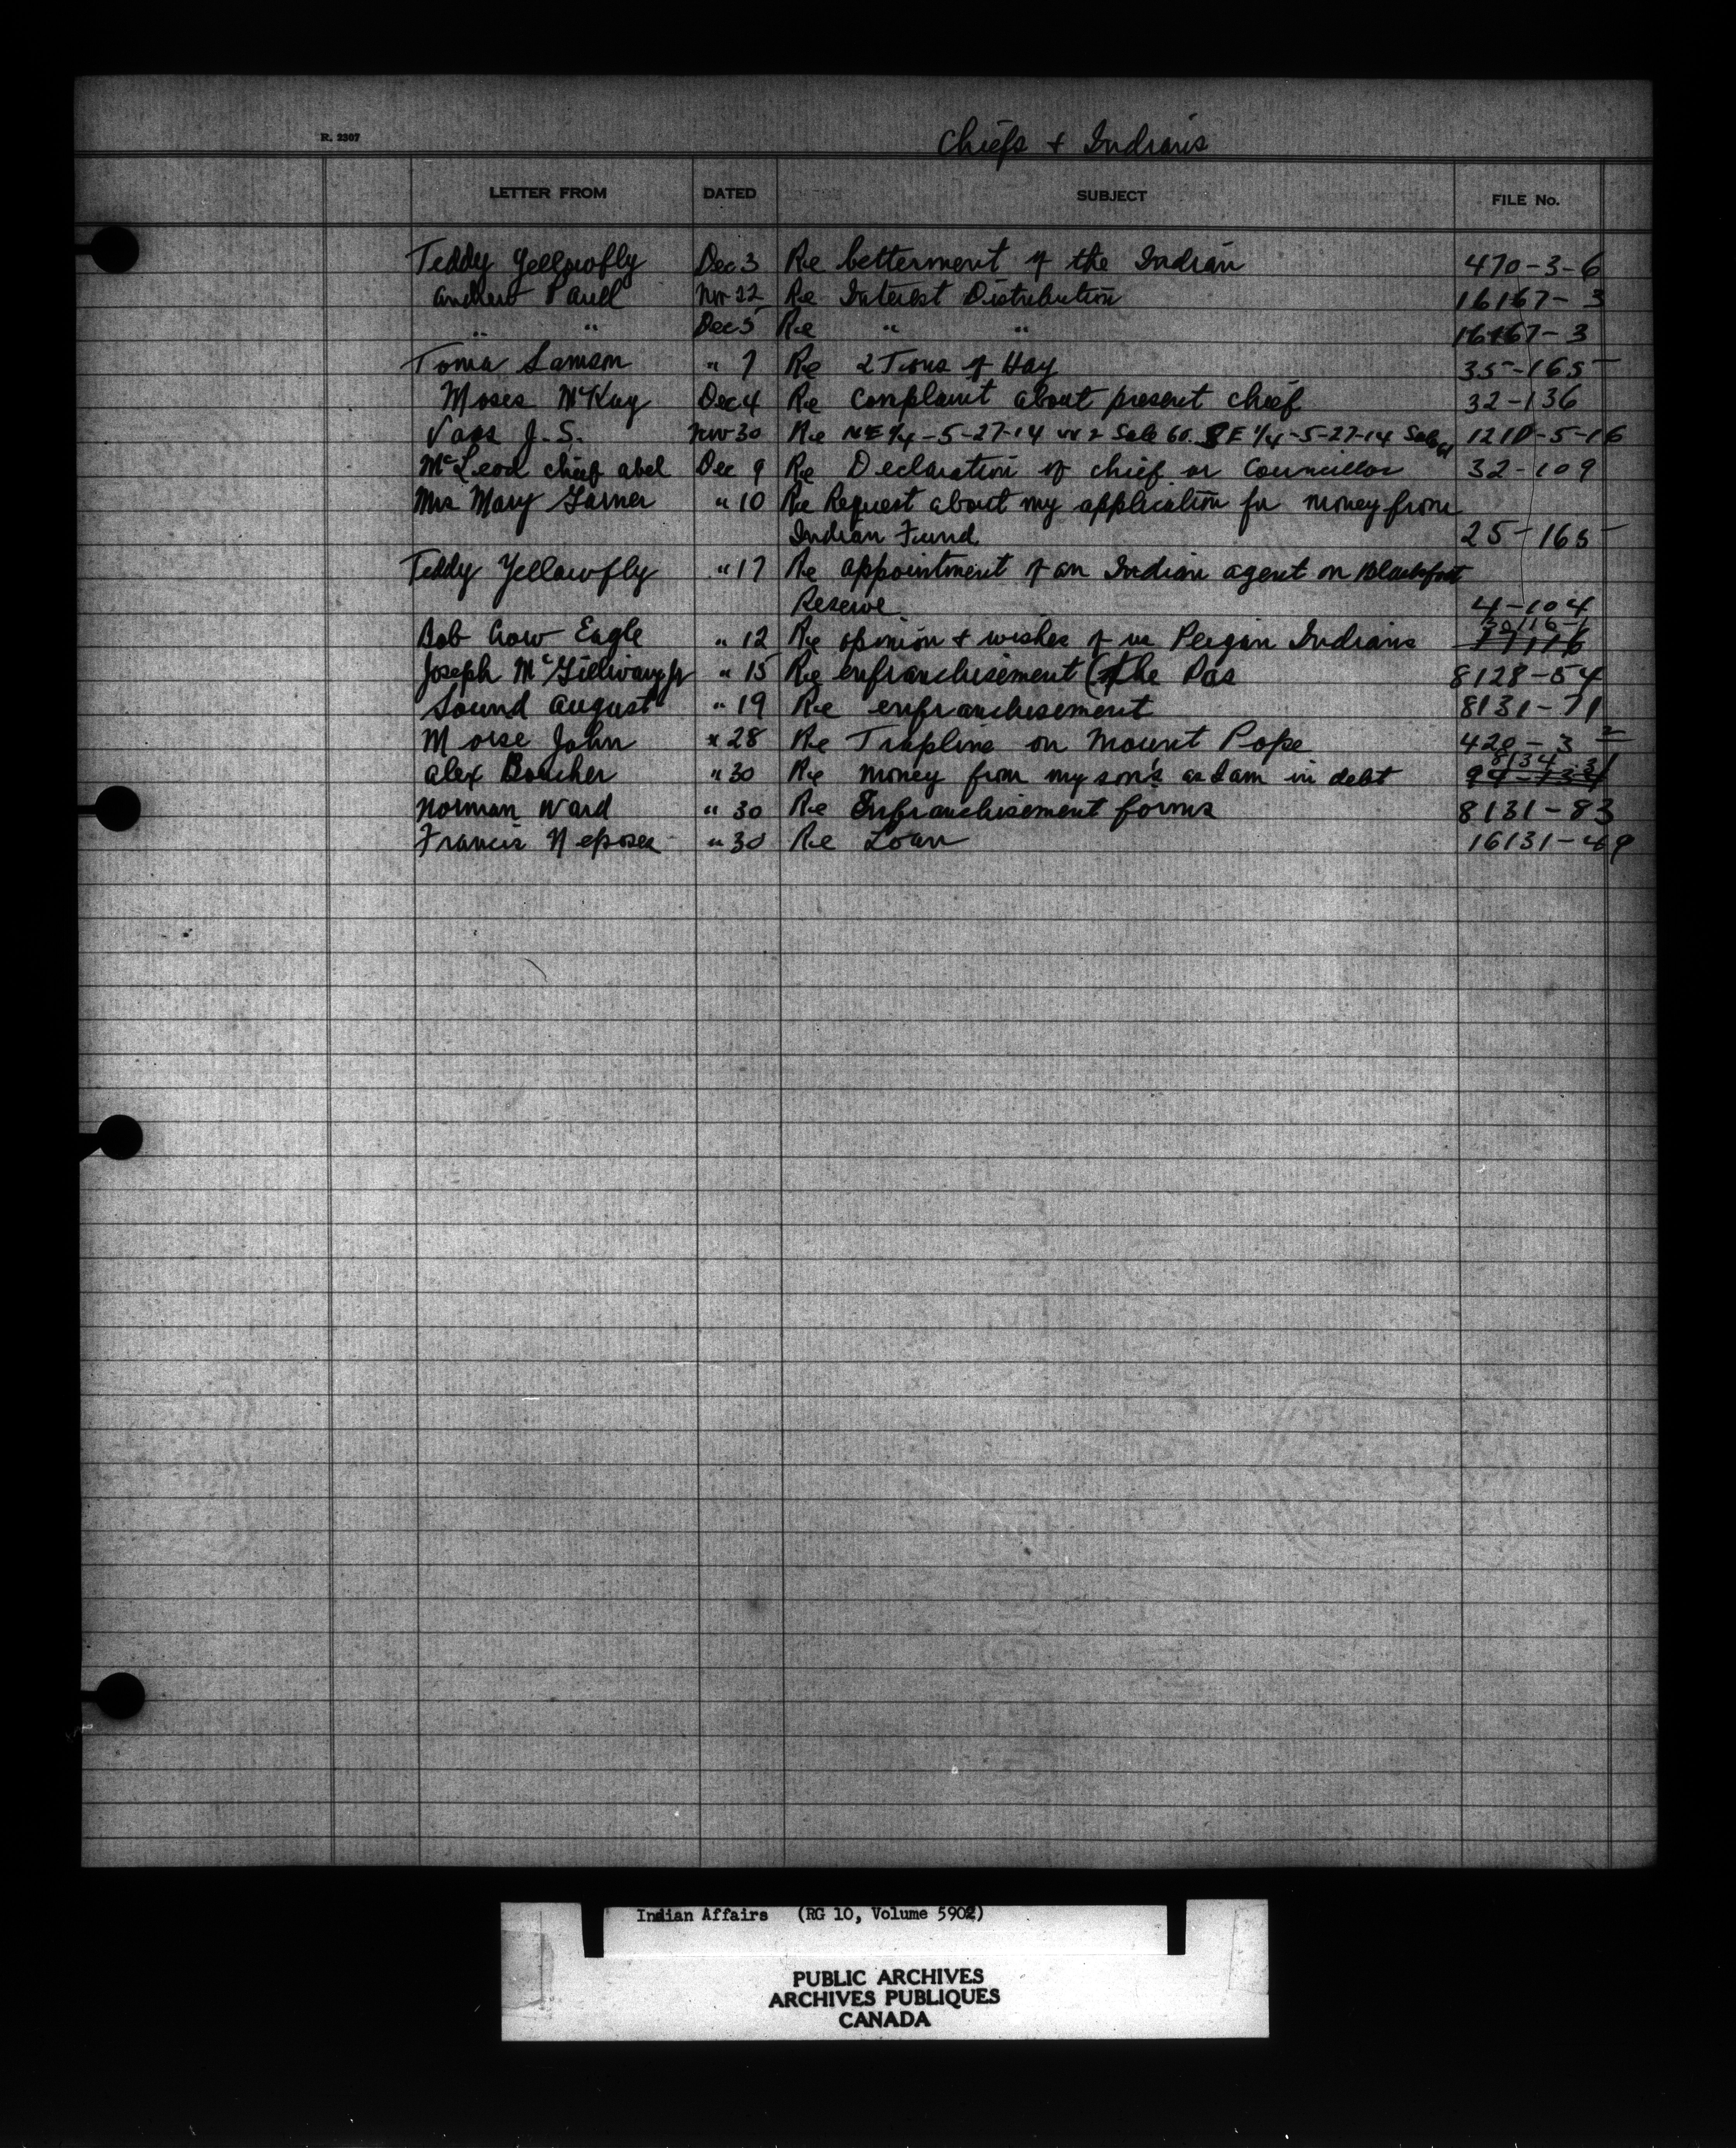 R. 2307
Chiefs + Indians
LETTER FROM DATED SUBJECT FILE No.
Teddy Yellowfly Dec 3 Re betterment of the Indian 470-3-6
Andrew Paull Nov 22 Re Interest Distribution 16167-3
" " Dec 5 Re " " 16167-3
Toma Samson " 7 Re 2 Tons of Hay 35-165
Moses McKay Dec 4 Re Complaint about present chief 32-136
J. S. Nov 30 Re NE 1/4 -5-27-14 W 2 Sale 60. SE 1/4 -5-27-14 Sale 61 -5-16
McLeod chief abel Dec 9 Re Declaration of chief or Councillor 32-109
Mrs Mary Garner " 10 Re Request about my application for money from
Indian Fund 25-165
Teddy Yellowfly " 17 Re appointment of an Indian agent on Blackfoot
Reserve 4-104
30116-1
Bob Crow Eagle " 12 Re opinion + wishes of us Peigan Indians
Joseph McGillivary Jr " 15 Re enfranchisement (The Pas 8128-54
Sound August " 19 Re enfranchisement 8131-71
Moise John " 28 Re Trapline on Mount Pope 420-3 2
8134-31
Alex Boucher " 30 Re money from my son's as I am in debt
Norman Ward " 30 Re Enfranchisement forms 8131-83
Francis Neposea " 30 Re Loan 16131-49
Indian Affairs (RG 10, Volume 5902)
PUBLIC ARCHIVES
ARCHIVES PUBLIQUES
CANADA